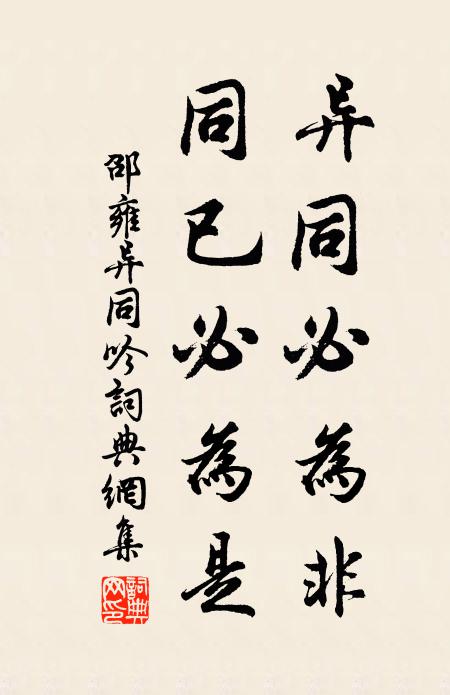 异同必為非
同已必為是
邵雍异同吟詞典網集
詞典網印